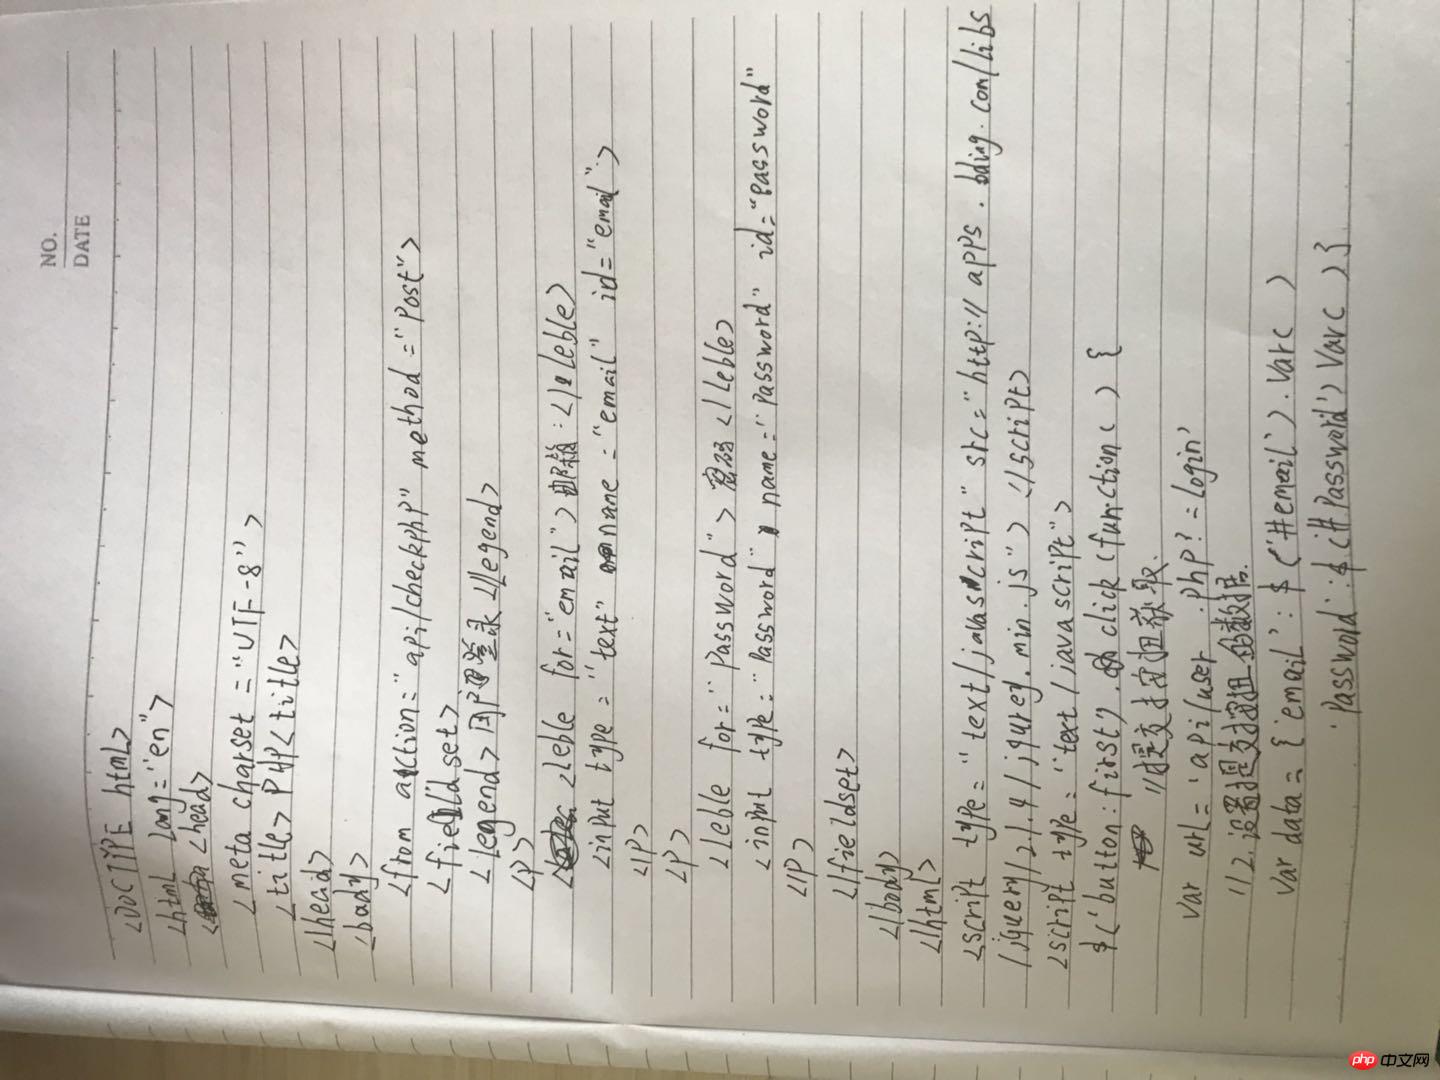 NO.
DATE
<DOCTYPE html>
<html lang="en">
<head>
<meta charset="UTF-8">
<title>PHP<title>
</head>
<bady>
<from action="api/checkphp" method="Post">
<fieldset>
<legend>用户登录</legend>
<P>
<leble for="email">邮箱:</leble>
<input type="text" name="email" id="email">
</P>
<P>
<leble for="Password">密码</leble>
<input type="Password" name="Password" id="password"
</P>
</fieldset>
</body>
</html>
<script type="text/javascript" src="http://apps.bding.com/libs
/jquery/2.1.4/jqurey.min.js"></script>
<script type="text/javascript">
$('button:first').click(function(){
//提交按扭获取.
var url='api/user.php?=login'
//2.设置提交按扭的数据.
Var data={'email':$('#email').Var()
'Password':$(#Password')Var()}
php 中文网